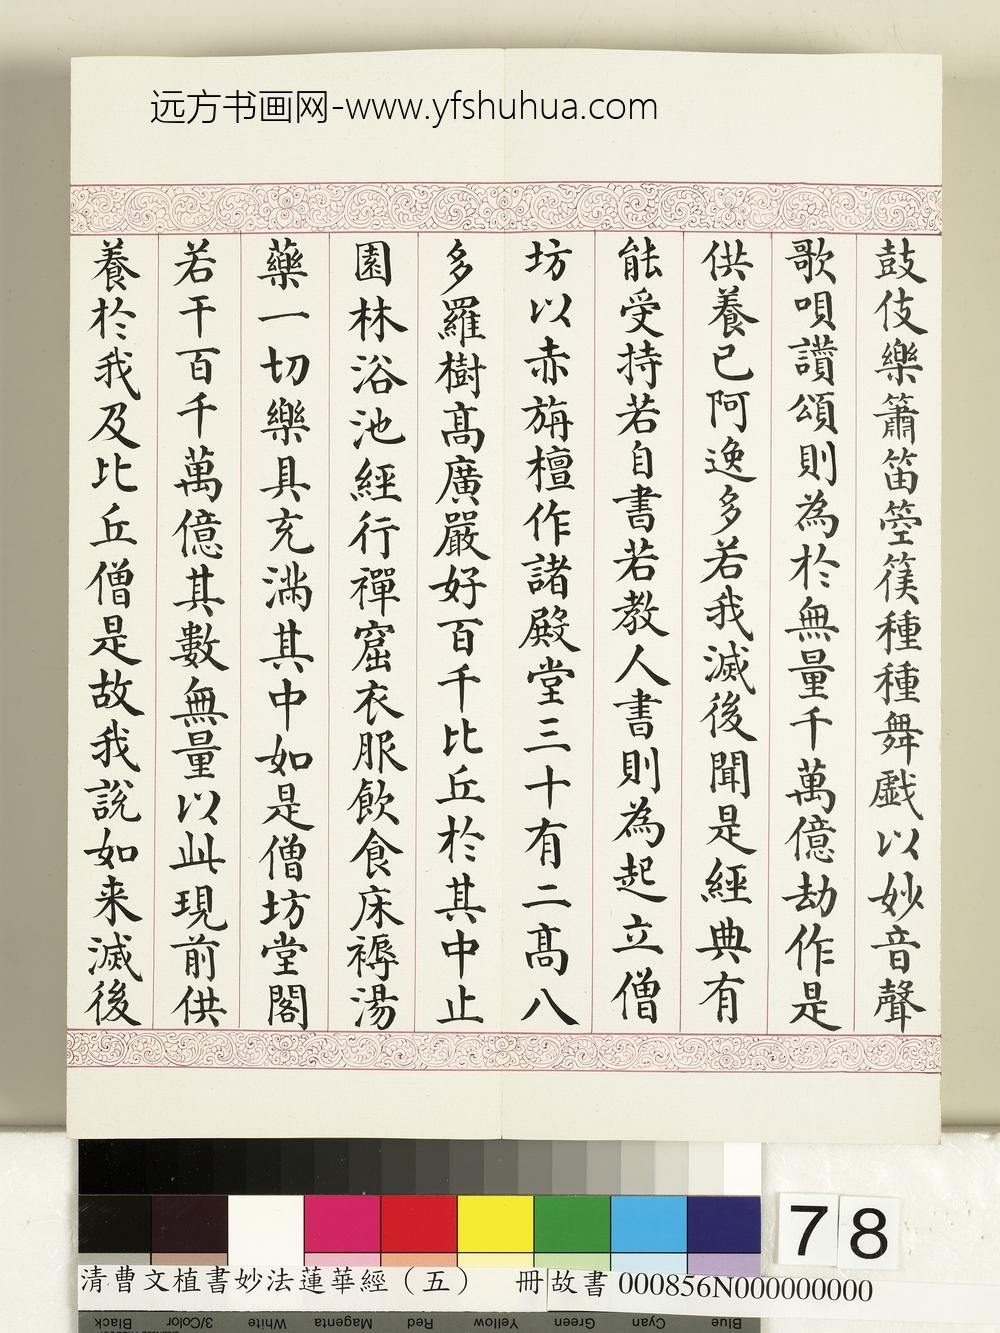 远方书画网-www.yfshuhua.com
鼓伎樂簫笛箜篌種種舞戯以妙音聲
歌唄讃頌則為於無量千萬億劫作是
供養已阿逸多若我滅後聞是經典有
能受持若自書若教人書則為起立僧
坊以赤旃檀作諸殿堂三十有二髙八
多羅樹髙廣嚴好百千比丘於其中止
園林浴池經行禪窟衣服飲食床褥湯
藥一切樂具充滿其中如是僧坊堂閣
若干百千萬億其數無量以此現前供
養於我及比丘僧是故我說如来滅後
78
清曹文植書妙法蓮華經（五） 冊 故書 000856N000000000
Black 3/Color White Magenta Red Yellow Green Cyan Blue